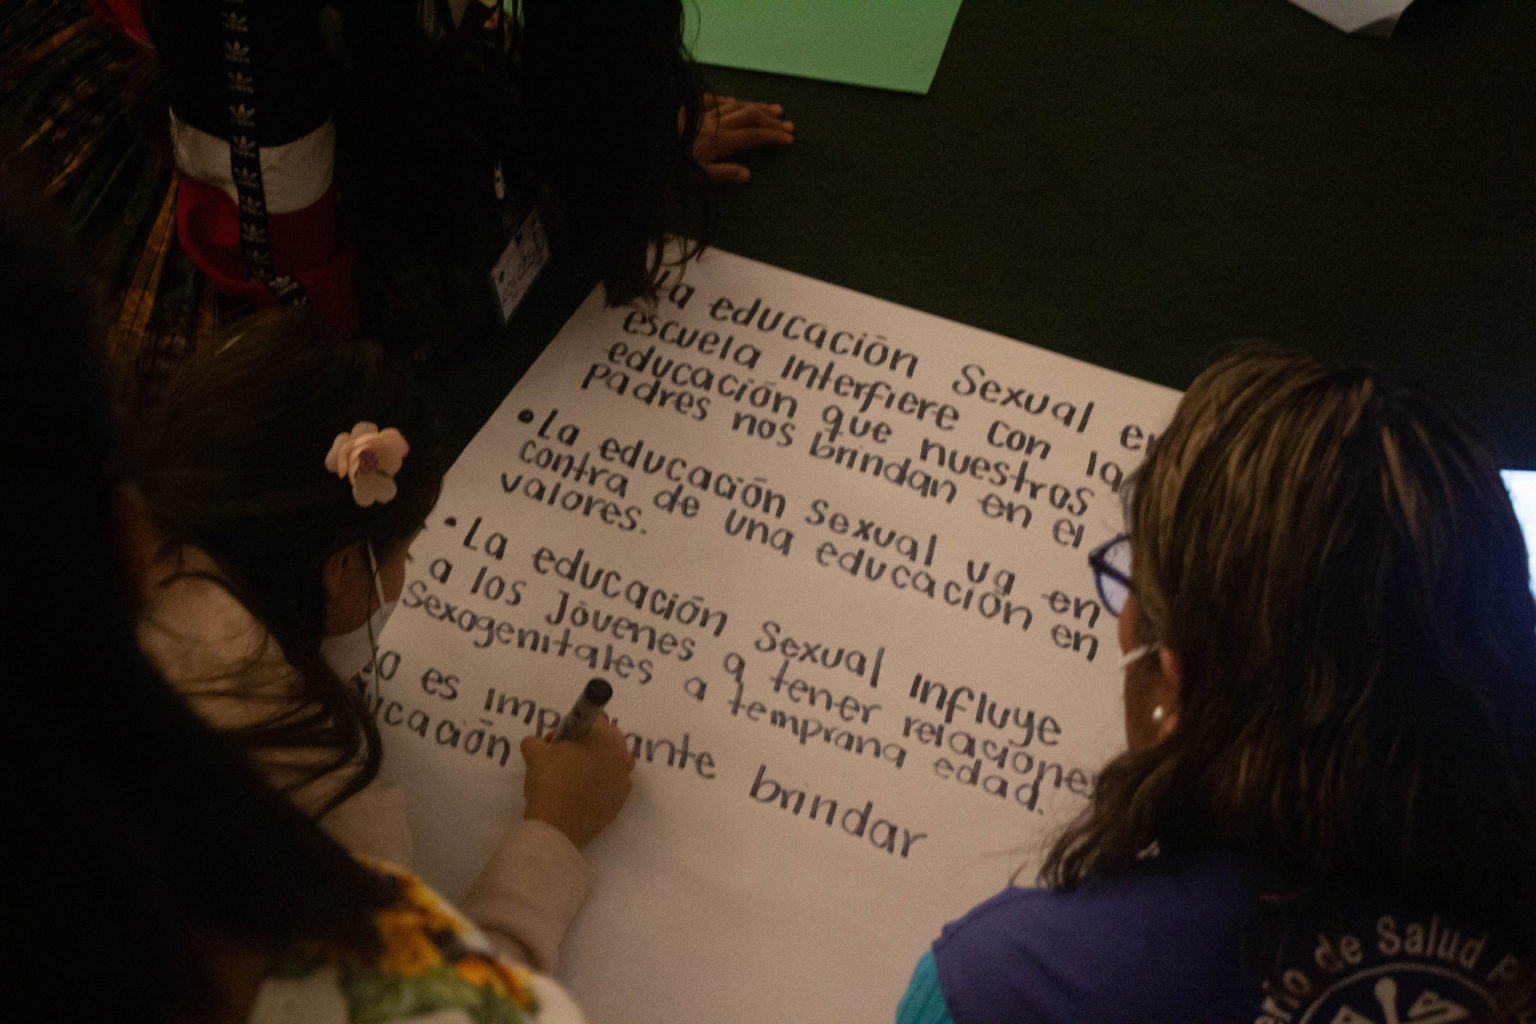 La educación Sexual en
escuela interfiere con la
educación que nuestros
Padres nos brindan en el
•La educación Sexual va en
contra de una educación en
valores.
•La educación Sexual influye
a los Jóvenes a tener relaciones
Sexogenitales a temprana edad.
es brindar
de Salud